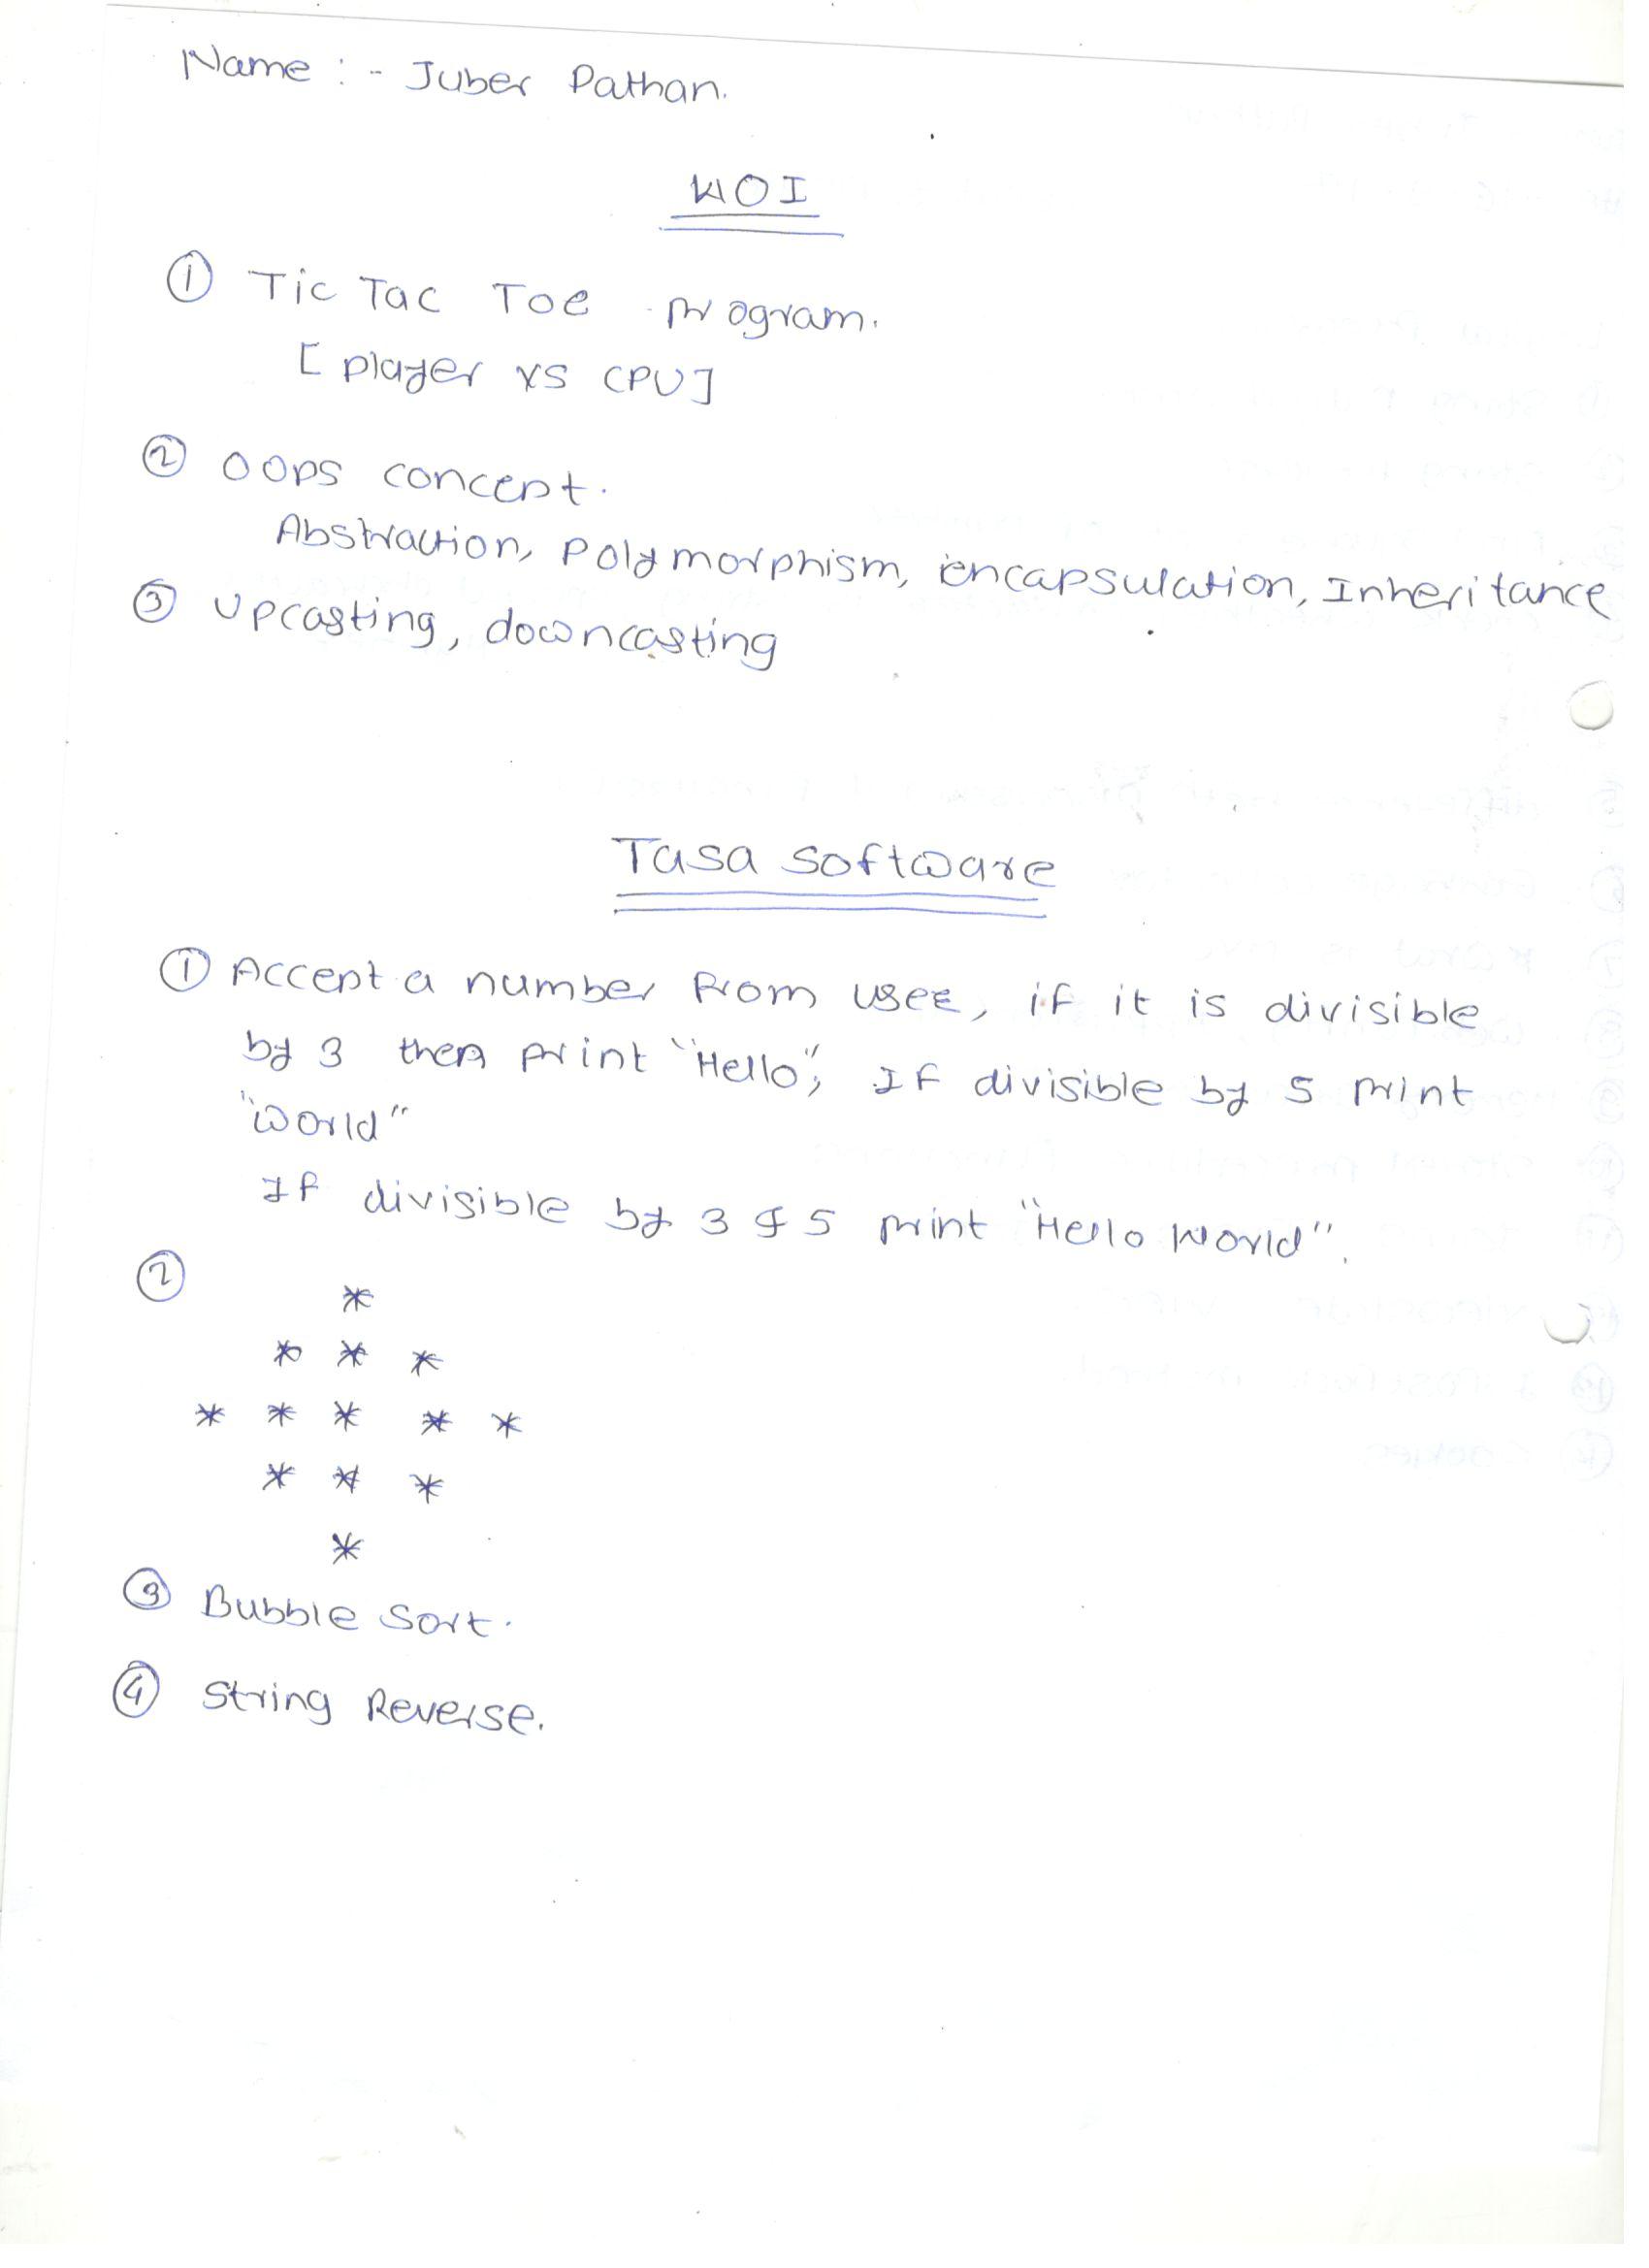 Name :- Juber Pathan.
WOI
① Tic Tac Toe program.
[player vs CPU]
② OOPS concept.
Abstraction, Polymorphism, encapsulation, Inheritance
③ Upcasting, downcasting
Tasa software
① Accept a number from user, if it is divisible
by 3 then print "Hello", If divisible by 5 print
"World"
If divisible by 3 & 5 print "Hello World".
②
*
* * *
* * * * *
* * *
*
③ Bubble Sort.
④ String Reverse.